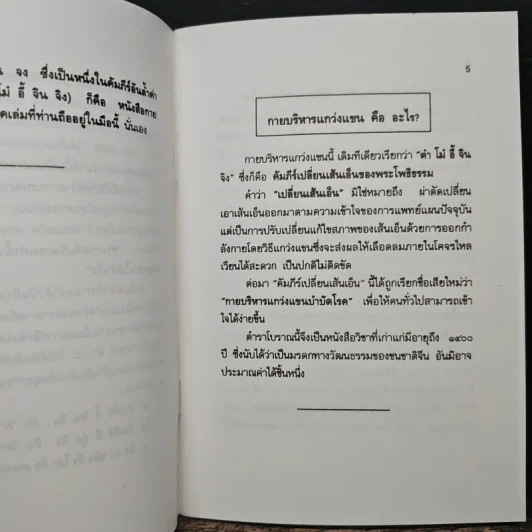 น จง ซึ่งเป็นหนึ่งในคัมภีร์อันล้ำค่า
โม๋ อี้ จิน จิง) ก็คือ หนังสือกาย
คเล่มที่ท่านถืออยู่ในมือนี้ นั่นเอง
5
กายบริหารแกว่งแขน คือ อะไร?
กายบริหารแกว่งแขนนี้ เดิมทีเดียวเรียกว่า "ตำ โม๋ อี้ จิน
จิง" ซึ่งก็คือ คัมภีร์เปลี่ยนเส้นเอ็นของพระโพธิธรรม
คำว่า "เปลี่ยนเส้นเอ็น" มิใช่หมายถึง ผ่าตัดเปลี่ยน
เอาเส้นเอ็นออกมาตามความเข้าใจของการแพทย์แผนปัจจุบัน
แต่เป็นการปรับเปลี่ยนแก้ไขสภาพของเส้นเอ็นด้วยการออกกำ
ลังกายโดยวิธีแกว่งแขนซึ่งจะส่งผลให้เลือดลมภายในโคจรไหล
เวียนได้สะดวก เป็นปกติไม่ติดขัด
ต่อมา "คัมภีร์เปลี่ยนเส้นเอ็น" นี้ได้ถูกเรียกชื่อเสียใหม่ว่า
"กายบริหารแกว่งแขนบำบัดโรค" เพื่อให้คนทั่วไปสามารถเข้า
ใจได้ง่ายขึ้น
ตำราโบราณนี้จึงเป็นหนังสือวิชาที่เก่าแก่มีอายุถึง ๑๔๐๐
ปี ซึ่งนับได้ว่าเป็นมรดกทางวัฒนธรรมของชนชาติจีน อันมิอาจ
ประมาณค่าได้ชิ้นหนึ่ง